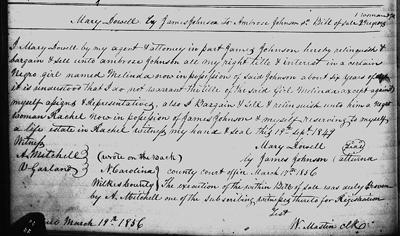 Mary Lowell by James Johnson To Ambrose Johnson Sr Bill of Sale 1 woman &
2 Negroes
I Mary Lowell by my agent & attorney in part James Johnson hereby relinquish &
bargain & sell unto Ambrose Johnson all my right title & interest in a certain
Negro girl named Melinda now in possession of said Johnson about six years of age
it is understood that I do not warrant the title of the said Girl Melinda except against
myself & Representatives, also I Bargain & Sell & relinquish unto him a negro
Woman Rachel now in possession of James Johnson & myself reserving to myself
a life estate in Rachel Witness my hand & seal this 19th Sept 1849
Witness Mary Lowell Seal
A. Mitchell (wrote on the back) by James Johnson
W Garland N Carolina county court office March 19th 1856
Wilkes County The execution of the within Bill of Sale was duly proven
by A. Mitchell one of the subscribing witnesses thereto for Registration
Test
March 19th 1856 W. Mastin Clk